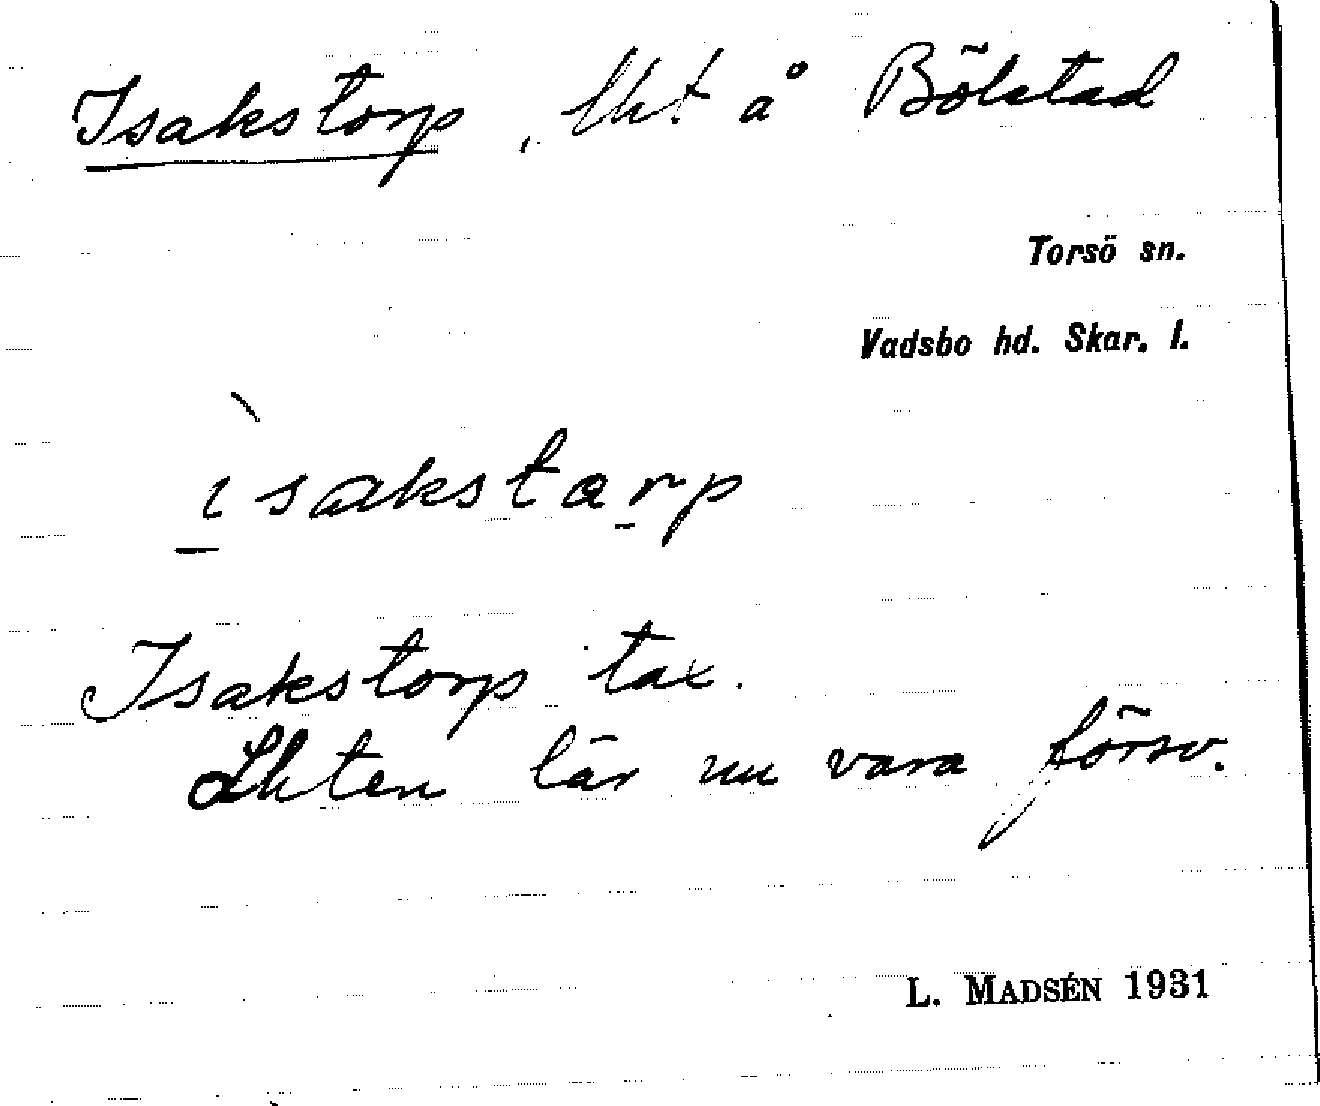 Isakstorp, lht å Bölstad
Torsö sn.
Vadsbo hd. Skar. l.
ìsakstarp
Isakstorp tax.
Lhten lär nu vara försv.
L. MADSÉN 1931